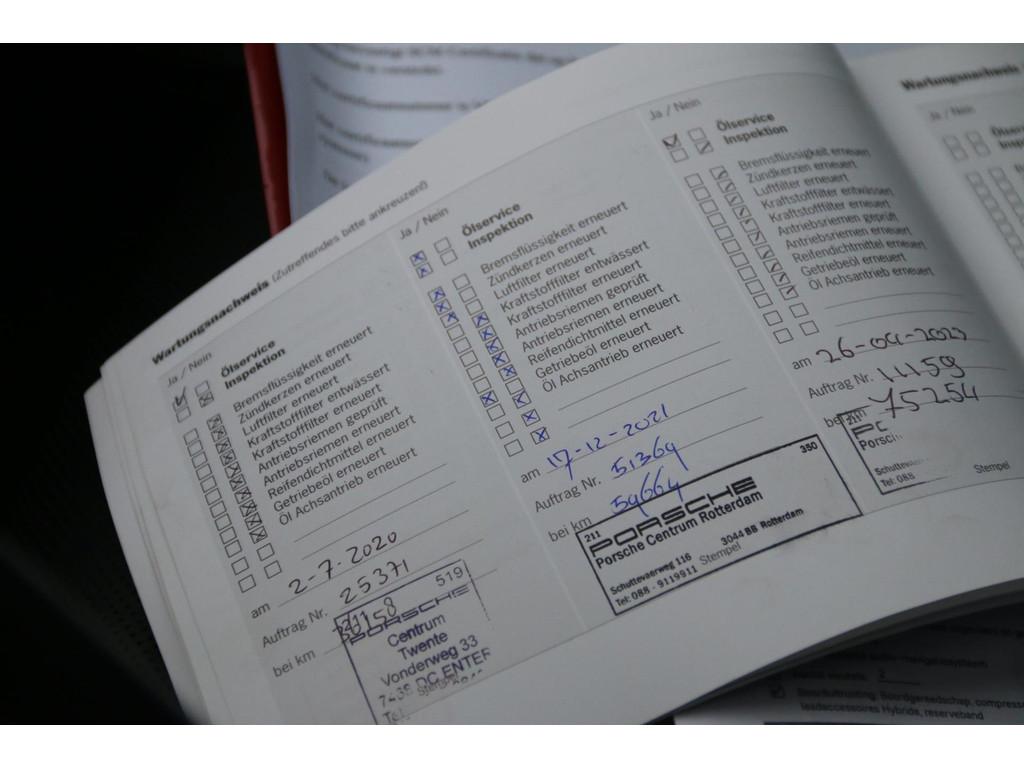 Wartungsnachweis (Zutreffendes bitte ankreuzen!)
Ja / Nein
Ölservice
Inspektion
Bremsflüssigkeit erneuert
Zündkerzen erneuert
Luftfilter erneuert
Kraftstofffilter entwässert
Kraftstofffilter erneuert
Antriebsriemen geprüft
Antriebsriemen erneuert
Reifendichtmittel erneuert
Getriebeöl erneuert
Öl Achsantrieb erneuert
am 2-7-2020
Auftrag Nr. 25371
bei km
211 519
PORSCHE
Centrum
Twente
Vonderweg 33
ENTER
Tel.
Ja / Nein
Ölservice
Inspektion
Bremsflüssigkeit erneuert
Zündkerzen erneuert
Luftfilter erneuert
Kraftstofffilter entwässert
Kraftstofffilter erneuert
Antriebsriemen geprüft
Antriebsriemen erneuert
Reifendichtmittel erneuert
Getriebeöl erneuert
Öl Achsantrieb erneuert
am 17-12-2021
Auftrag Nr. 51369
bei km 59664
211 350
PORSCHE
Porsche Centrum Rotterdam
Schuttevaerweg 116 3044 BB Rotterdam
Tel: 088 - 9119911 Stempel
Ja / Nein
Ölservice
Inspektion
Bremsflüssigkeit erneuert
Zündkerzen erneuert
Luftfilter erneuert
Kraftstofffilter entwässert
Kraftstofffilter erneuert
Antriebsriemen geprüft
Antriebsriemen erneuert
Reifendichtmittel erneuert
Getriebeöl erneuert
Öl Achsantrieb erneuert
am
Auftrag Nr. 14159
bei km 75254
211
Stempel
Tel: 088
Wartungsnachweis
Ja / Nein